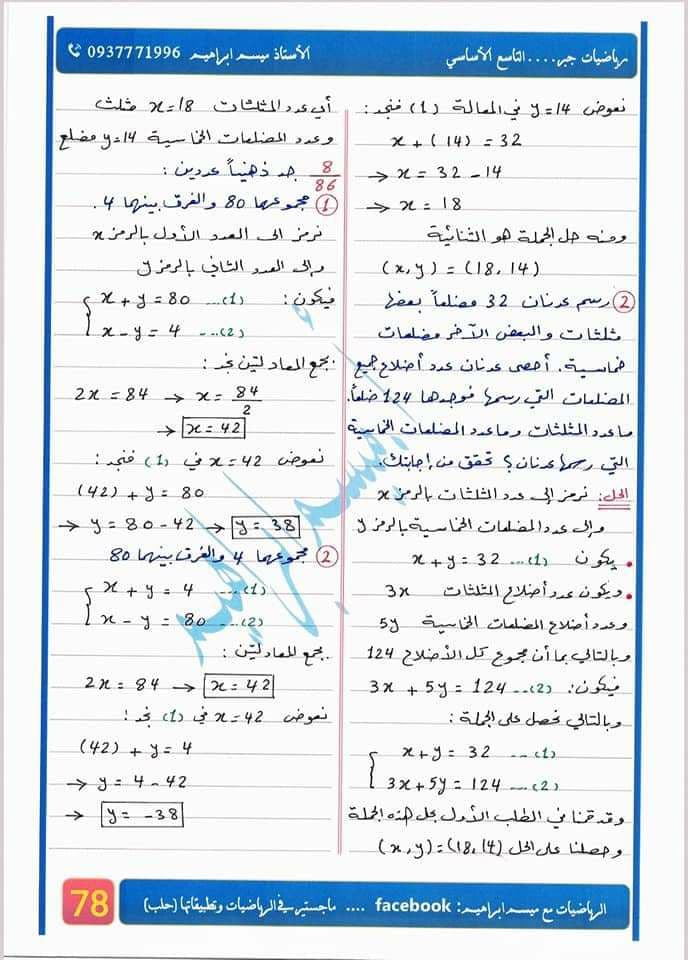 رياضيات جبر.... التاسع الأساسي
الأستاذ ميسم ابراهيم 0937771996
نعوض y=14 في المعالة (1) فنجد:
x + (14) = 32
→ x = 32 - 14
→ x = 18
ومنه حل الجملة هو الثنائية
(x,y) = (18,14)
② رسم عدنان 32 مضلعاً بعضها
مثلثات والبعض الآخر مضلعات
خماسية. أحصى عدنان عدد أضلاع جميع
المضلعات التي رسمها فوجدها 124 ضلعاً.
ما عدد المثلثات وما عدد المضلعات الخماسية
التي رسمها عدنان؟ تحقق من إجابتك.
الحل: نرمز إلى عدد المثلثات بالرمز x
وإلى عدد المضلعات الخماسية بالرمز y
• يكون x + y = 32 ...(1)
• ويكون عدد أضلاع المثلثات 3x
وعدد أضلاع المضلعات الخماسية 5y
وبالتالي بما أن مجموع كل الأضلاع 124
فيكون: 3x + 5y = 124 ...(2)
وبالتالي نحصل على الجملة:
x + y = 32 ...(1)
3x + 5y = 124 ...(2)
وقد قمنا في الطلب الأول بحل هذه الجملة
وحصلنا على الحل (x,y) = (18,14)
أي عدد المثلثات x = 18 مثلث
وعدد المضلعات الخماسية y = 14 مضلع
8/86 جد ذهنياً عددين:
① مجموعهما 80 والفرق بينهما 4.
نرمز الى العدد الأول بالرمز x
وإلى العدد الثاني بالرمز y
فيكون: x + y = 80 ...(1)
x - y = 4 ...(2)
بجمع المعادلتين نجد:
2x = 84 → x = 84/2
→ x = 42
نعوض x = 42 في (1) فنجد:
(42) + y = 80
→ y = 80 - 42 → y = 38
② مجموعهما 4 والفرق بينهما 80
x + y = 4 ...(1)
x - y = 80 ...(2)
بجمع المعادلتين:
2x = 84 → x = 42
نعوض x = 42 في (1) نجد:
(42) + y = 4
→ y = 4 - 42
→ y = -38
أ. ميسم ابراهيم
الرياضيات مع ميسم ابراهيم: facebook .... ماجستير في الرياضيات وتطبيقاتها (حلب)
78